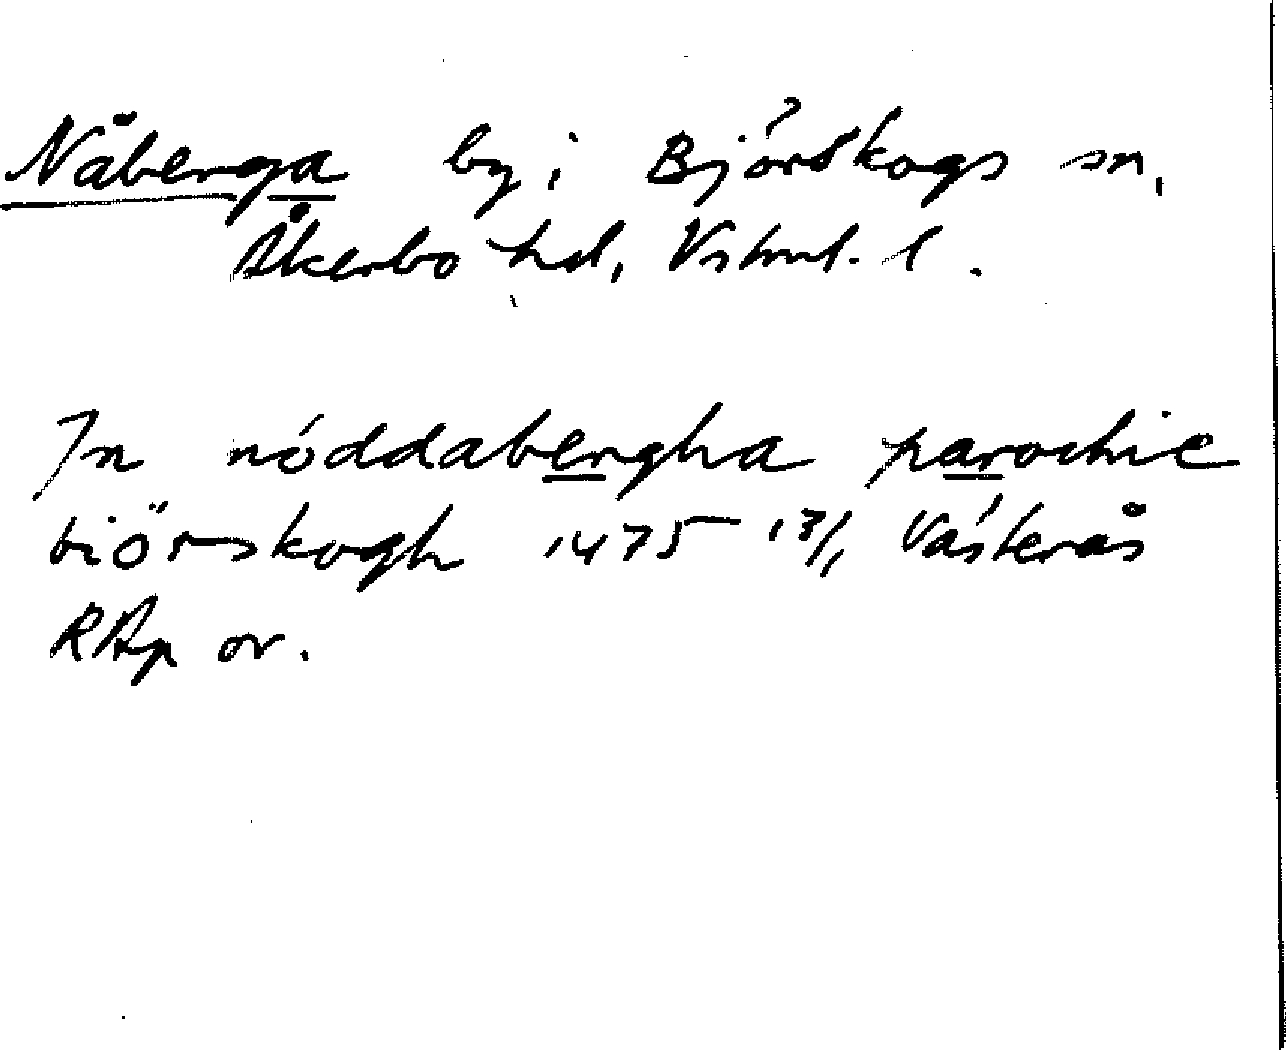 Nåberga by i Björskogs sn,
Åkerbo hd, Vstml. l.
In nöddabergha parochie
biörskogh 1475 13/1 Västerås
RAp or.